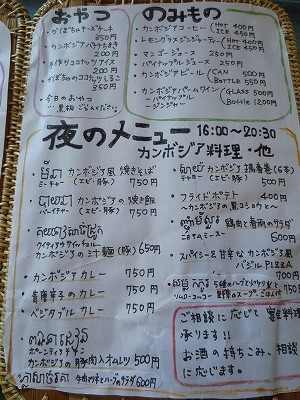 おやつ
・かぼちゃチーズケーキ
350円
・カンボジアバナナもち焼き
200円
・手作りココナッツアイス
200円
・かぼちゃのココナッツしるこ
350円
・今日のおやつ
…黒板ごらんください。
のみもの
・カンボジアコーヒー HOT 400円
ICE 450円
・レモングラスジンジャーティー HOT 400円
ICE 450円
・マンゴージュース 250円
・パイナップルジュース 250円
・カンボジアビール CAN 500円
BOTTLE 550円
・カンボジアパームワイン GLASS 500円
-パイナップル BOTTLE 1200円
-ジンジャー
夜のメニュー 16:00～20:30
カンボジア料理・他
カンボジア風焼きそば
ミーチャー (エビ・豚) 750円
カンボジアの焼き飯
バーイチャー (エビ・豚) 750円
カンボジアの汁麺(豚) 650円
・カンボジアカレー 750円
・青唐辛子のカレー 750円
・ベジタブルカレー 750円
カンボジアの豚肉入オムレツ 500円
牛肉の米とハーブのサラダ 600円
カンボジア揚春巻(6本)
チャーヨー (エビ・豚) 500円
・フライドポテト 400円
～カンボジアの黒コショウで～
鶏肉と春雨のサラダ
600円
・スパイシーな甘辛なカンボジア風
バジルPIZZA
700円
5種のハーブとかつり魚と
野菜のスープ。ごはん付 750円
ご相談に応じて宴会料理
承ります!!
お酒の持ちこみ、相談
に応じます。